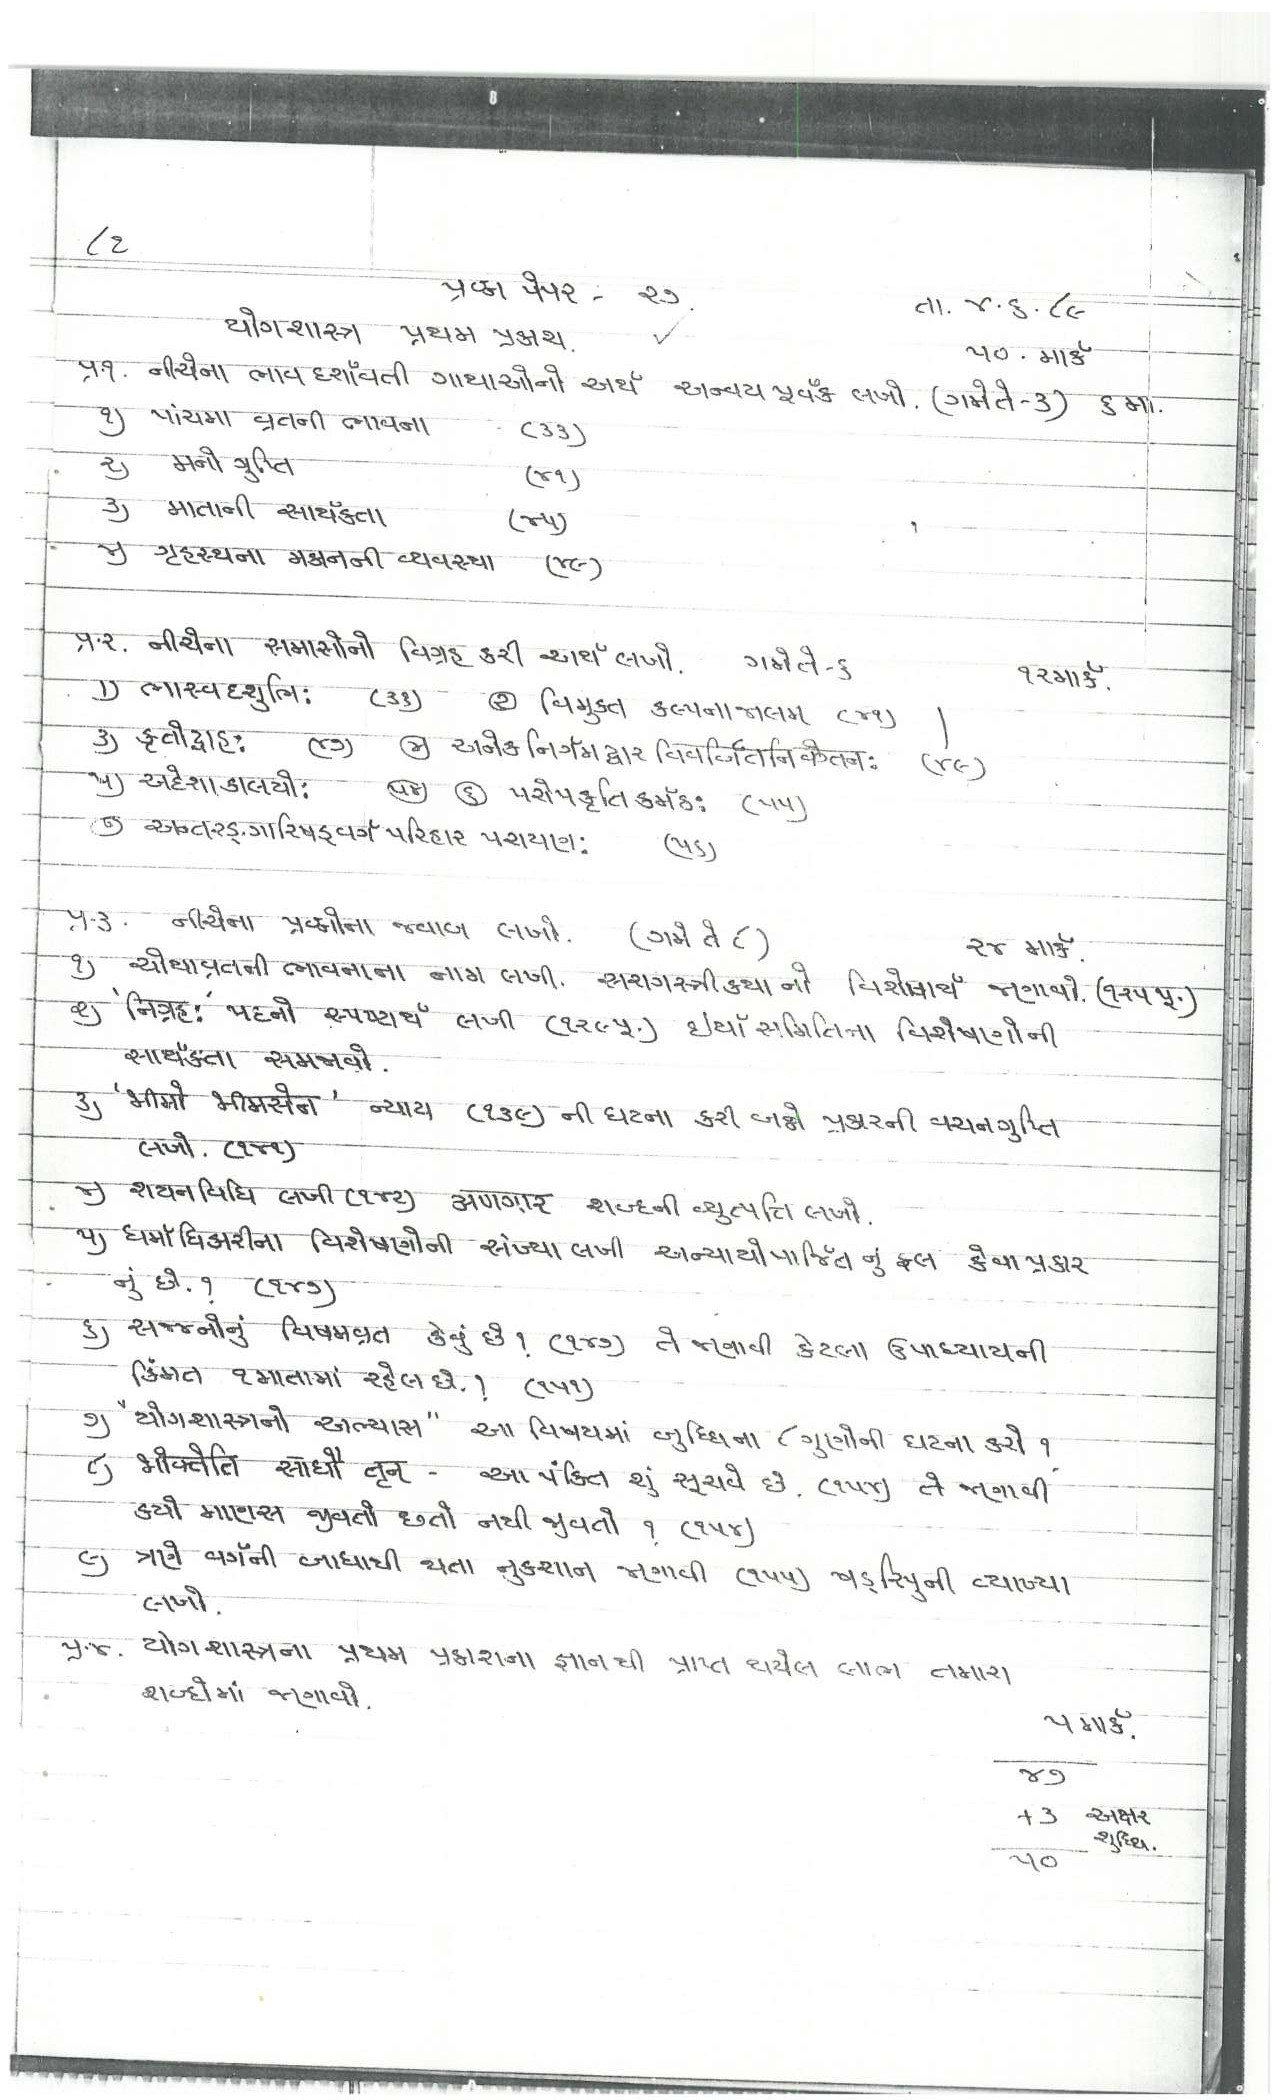 ૮૨
પ્રશ્ન પેપર - ૨૭.
તા. ૪.૬.૮૯
યોગશાસ્ત્ર પ્રથમ પ્રકાશ.
૫૦. માર્ક
પ્ર.૧. નીચેના ભાવ દર્શાવતી ગાથાઓનો અર્થ અન્વય પૂર્વક લખો. (ગમેતે-૩) ૬ મા.
૧) પાંચમા વ્રતની ભાવના (૩૩)
૨) મનોગુપ્તિ (૪૧)
૩) માતાની સાર્થકતા (૪૫)
૪) ગૃહસ્થના મકાનની વ્યવસ્થા (૪૯)
પ્ર.૨. નીચેના સમાસોનો વિગ્રહ કરી અર્થ લખો. ગમે તે-૬ ૧૨માર્ક.
૧) ભાસ્વદશુભિઃ (૩૬) ૨) વિમુક્ત કલ્પનાજાલમ્ (૪૧)
૩) કૃતોદ્વાહઃ (૪૭) ૪) અનેકનિર્ગમદ્વાર વિવર્જિતનિકેતનઃ (૪૯)
૫) અદેશાકાલયોઃ (૫૪) ૬) પરોપકૃતિકર્મઠઃ (૫૫)
૭) અન્તરઙ્ગારિષડ્વર્ગપરિહાર પરાયણઃ (૫૬)
પ્ર.૩. નીચેના પ્રશ્નોના જવાબ લખો. (ગમે તે ૮) ૨૪ માર્ક.
૧) ચોથાવ્રતની ભાવનાના નામ લખી. સરાગસ્ત્રીકથા નો વિશેષાર્થ જણાવો. (૧૨૫પૃ.)
૨) 'નિગ્રહઃ' પદનો સ્પષ્ટાર્થ લખી (૧૨૯પૃ.) ઇર્યાસમિતિના વિશેષણોની
સાર્થકતા સમજાવો.
૩) 'ભીમો ભીમસેન' ન્યાય (૧૩૯) ની ઘટના કરી બન્ને પ્રકારની વચનગુપ્તિ
લખો. (૧૪૧)
૪) શયનવિધિ લખી (૧૪૨) અણગાર શબ્દની વ્યુત્પત્તિ લખો.
૫) ધર્માધિકારીના વિશેષણોની સંખ્યા લખી અન્યાયોપાર્જિત નું ફલ કેવા પ્રકાર
નું છે.? (૧૪૭)
૬) સજ્જનોનું વિષમવ્રત કેવું છે? (૧૪૭) તે જણાવી કેટલા ઉપાધ્યાયની
કિંમત ૧માતામાં રહેલ છે.? (૧૫૧)
૭) "યોગશાસ્ત્રનો અભ્યાસ" આ વિષયમાં બુધ્ધિના ૮ ગુણોની ઘટના કરો ?
૮) ભોક્તેતિ સાધૌ તૃન્ - આ પંક્તિ શું સૂચવે છે. (૧૫૪) તે જણાવી
કયો માણસ જીવતો છતો નથી જીવતો ? (૧૫૪)
૯) ત્રણે વર્ગની બાધાથી થતા નુકશાન જણાવી (૧૫૫) ષડ્રિપુની વ્યાખ્યા
લખો.
પ્ર.૪. યોગશાસ્ત્રના પ્રથમ પ્રકાશના જ્ઞાનથી પ્રાપ્ત થયેલ લાભ તમારા
શબ્દોમાં જણાવો.
૫ માર્ક.
૪૭
+૩ અક્ષર
શુધ્ધિ.
૫૦